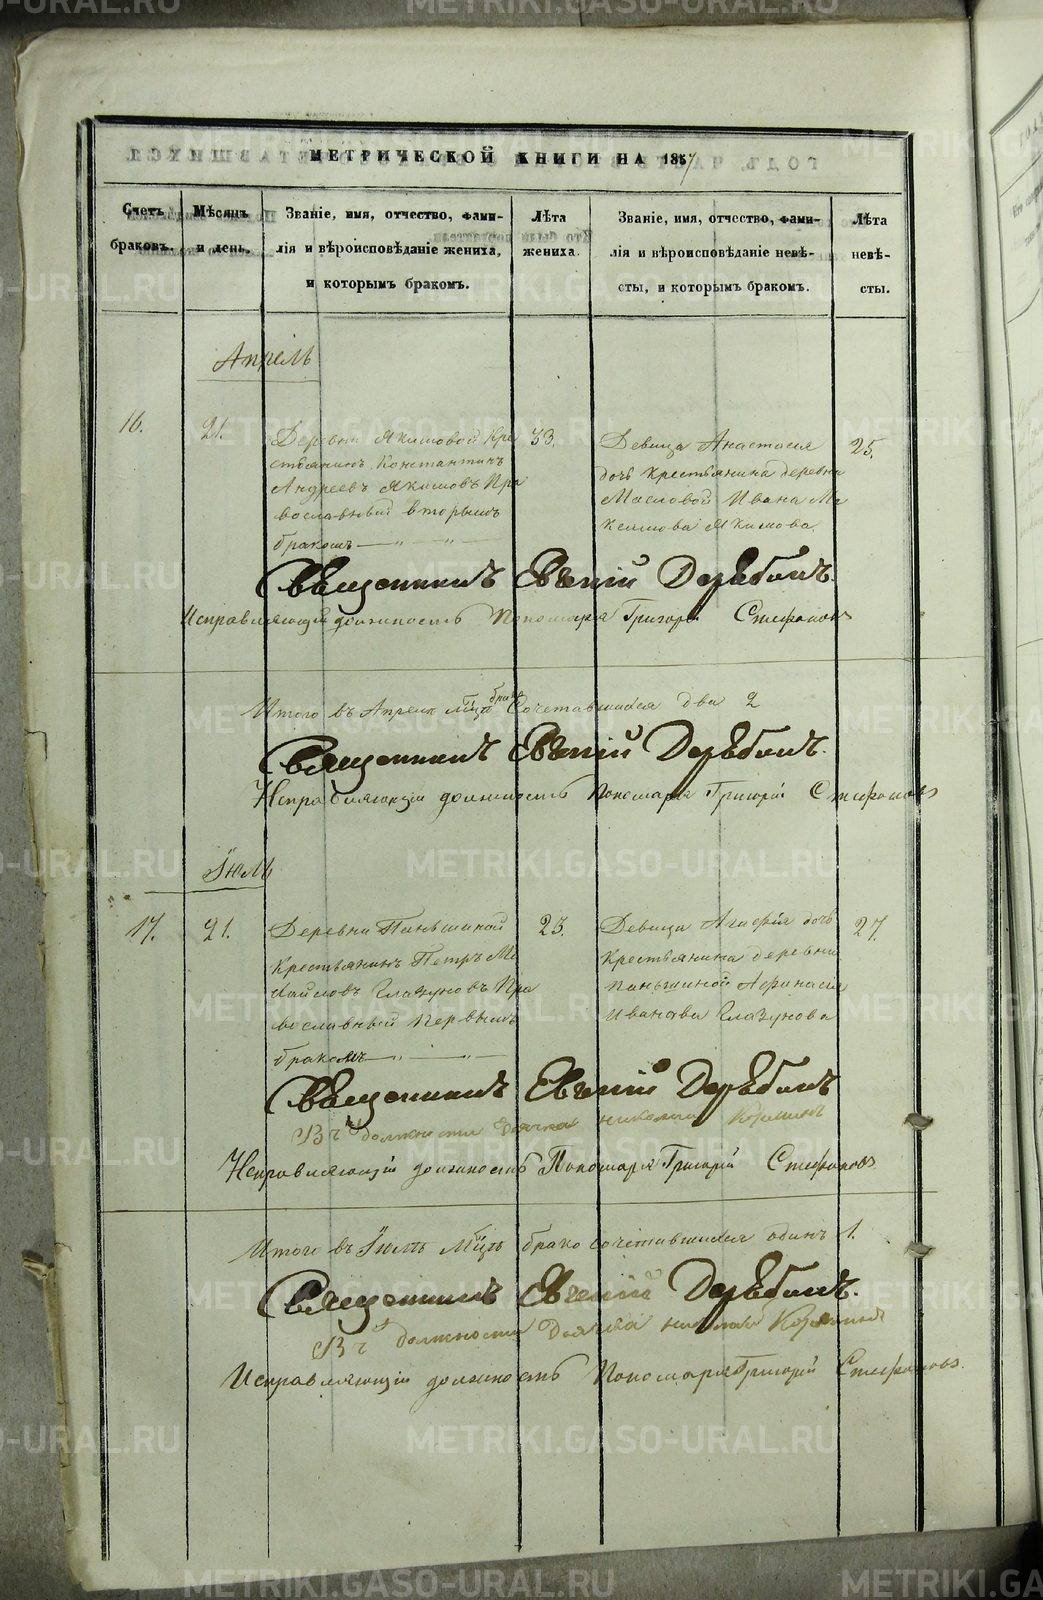 МЕТРИЧЕСКОЙ КНИГИ НА 1857
Счетъ браковъ.
Мѣсяцъ и день.
Званіе, имя, отчество, фами-
лія и вѣроисповѣданіе жениха,
и которымъ бракомъ.
Лѣта
жениха.
Званіе, имя, отчество, фами-
лія и вѣроисповѣданіе невѣ-
сты, и которымъ бракомъ.
Лѣта
невѣ-
сты.
Апрель
16.
21.
Деревни Якимовой Кре
стьянинъ Константинъ
Андреевъ Якимовъ Пра
вославный вторымъ
бракомъ
33.
Девица Анастасія
дочь Крестьянина деревни
Масловой Ивана Ма
ксимова Якимова.
25.
Священникъ Евгеній Дерябинъ.
Исправляющій должность Пономаря Григорій Стефановъ
Итого въ Апреле м͠цѣ брако Сочетавшихся два 2
Священникъ Евгеній Дерябинъ.
Исправляющій должность Пономаря Григорій Стефановъ
Іюль
17.
21.
Деревни Паньшиной
Крестьянинъ Петръ Ми
хайловъ Глазуновъ Пра
вославный первымъ
бракомъ
23.
Девица Агафія дочь
Крестьянина деревни
Паньшиной Афанасія
Иванова Глазунова
27.
Священникъ Евгеній Дерябинъ
В ч должности Дьячка Николай
Исправляющій должность Пономаря Григорій Стефановъ
Итого въ Іюлѣ м͠цѣ брако сочетавшихся одинъ 1.
Священникъ Евгеній Дерябинъ.
В ч должности Дьячка Николай
Исправляющій должность Пономаря Григорій Стефановъ.
METRIKI.GASO-URAL.RU